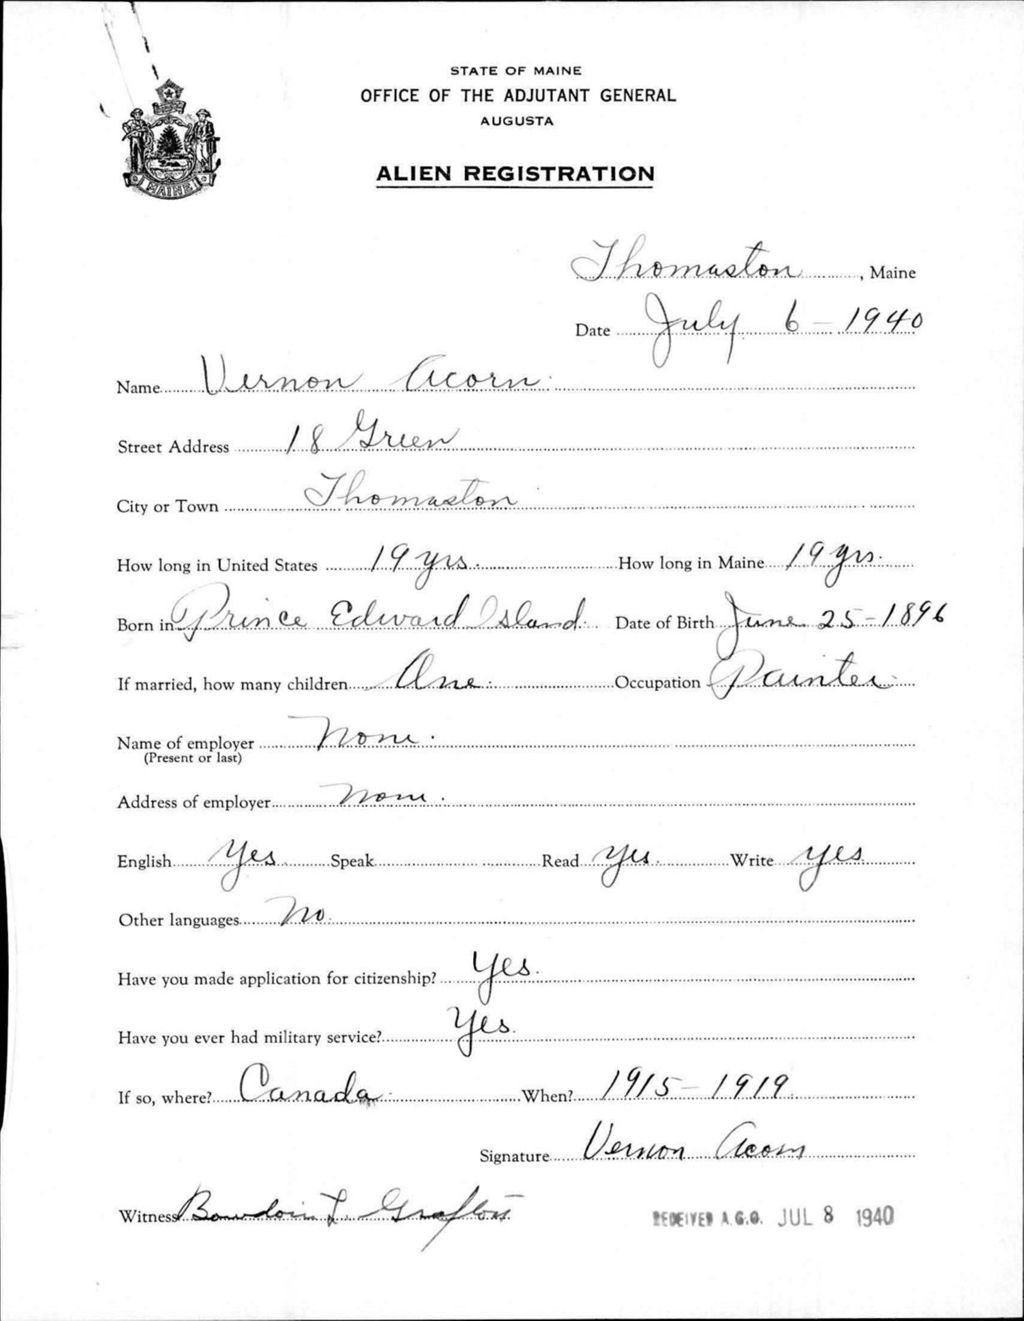 STATE OF MAINE
OFFICE OF THE ADJUTANT GENERAL
AUGUSTA
ALIEN REGISTRATION
MAINE
Thomaston, Maine
Date July 6 - 1940
Name Vernon Acorn.
Street Address 18 Green
City or Town Thomaston
How long in United States 19 yrs. How long in Maine 19 yrs.
Born in Prince Edward Island. Date of Birth June 25-1896
If married, how many children One. Occupation Painter
Name of employer None.
(Present or last)
Address of employer None.
English Yes Speak Read Yes. Write Yes
Other languages No.
Have you made application for citizenship? Yes.
Have you ever had military service? Yes.
If so, where? Canada. When? 1915 - 1919.
Signature Vernon Acorn
Witness Bowdoin L. Grafton
RECEIVED A.G.O. JUL 8 1940